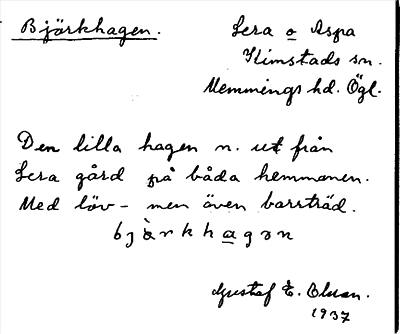 Björkhagen.
Lera o Aspa
Kimstads sn.
Memmings hd. Ögl.
Den lilla hagen n. ut från
Lera gård på båda hemmanen.
Med löv- men även barrträd.
Gustaf E. Olsson.
1937